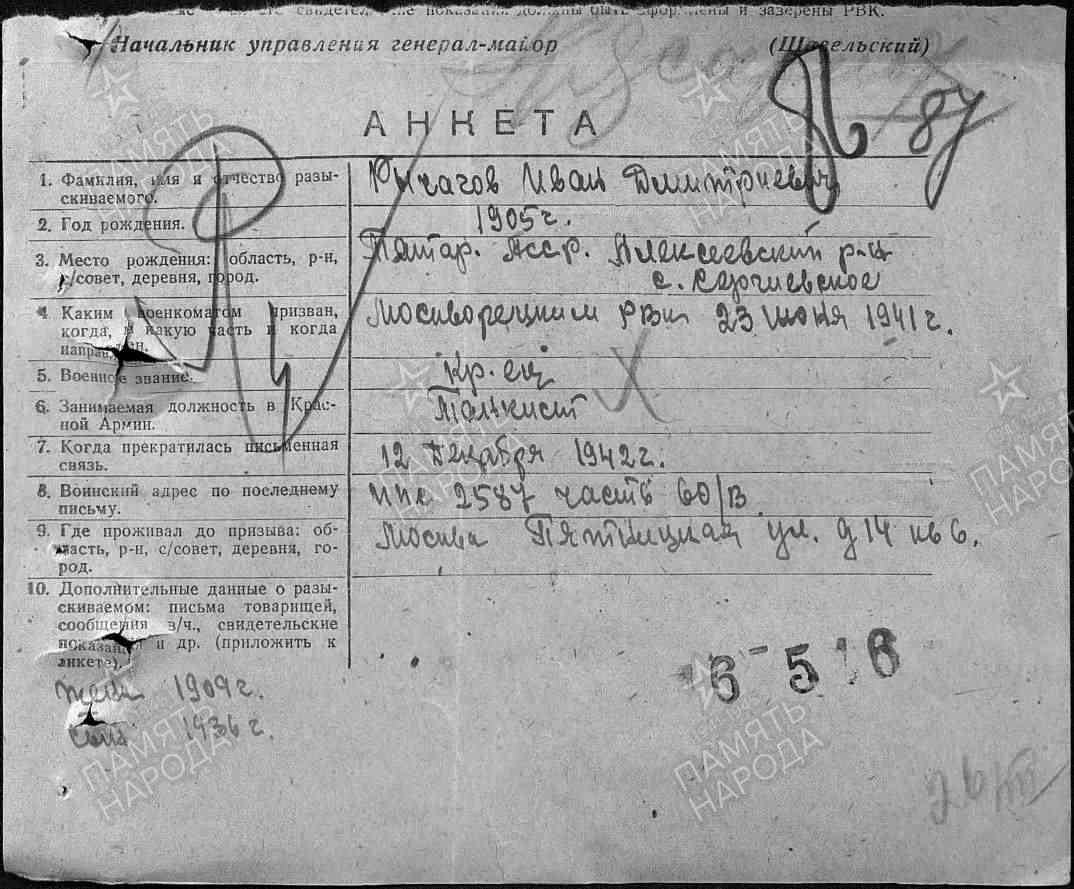 свидетельские показания должны быть оформлены и заверены РВК.
Начальник управления генерал-майор (Шавельский)
87
АНКЕТА
1. Фамилия, имя и отчество разы-
скиваемого.
Рычагов Иван Дмитриевич
2. Год рождения.
1905 г.
3. Место рождения: область, р-н,
с/совет, деревня, город.
Татар. Асср. Алексеевский р-н
с.
4. Каким военкоматом призван,
когда, в какую часть и когда
направлен.
Москворецким РВК 23 июня 1941 г.
5. Военное звание.
Кр. ец
6. Занимаемая должность в Крас-
ной Армии.
Танкист
7. Когда прекратилась письменная
связь.
12 Декабря 1942 г.
8. Воинский адрес по последнему
письму.
ППС 2587 часть 60/В
9. Где проживал до призыва: об-
ласть, р-н, с/совет, деревня, го-
род.
Москва Пятницкая ул. д 14 кв 6.
10. Дополнительные данные о разы-
скиваемом: письма товарищей,
сообщения в/ч., свидетельские
показания и др. (приложить к
анкете).
жена 1909 г.
сын 1936 г.
6 5 6
26/III
ПАМЯТЬ
НАРОДА